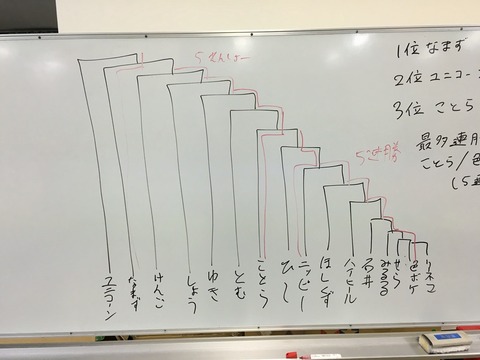 5れんしょー
5連勝
1位 なまず
2位 ユニコーン
3位 ことら
最多連勝
ことら/色
(5連
ユニコーン
なまず
けんご
しょう
ゆき
とむ
ことら
ひし
ニッピー
ほしくず
ハイヒール
石井
みるる
せら
色ボケ
リネコ